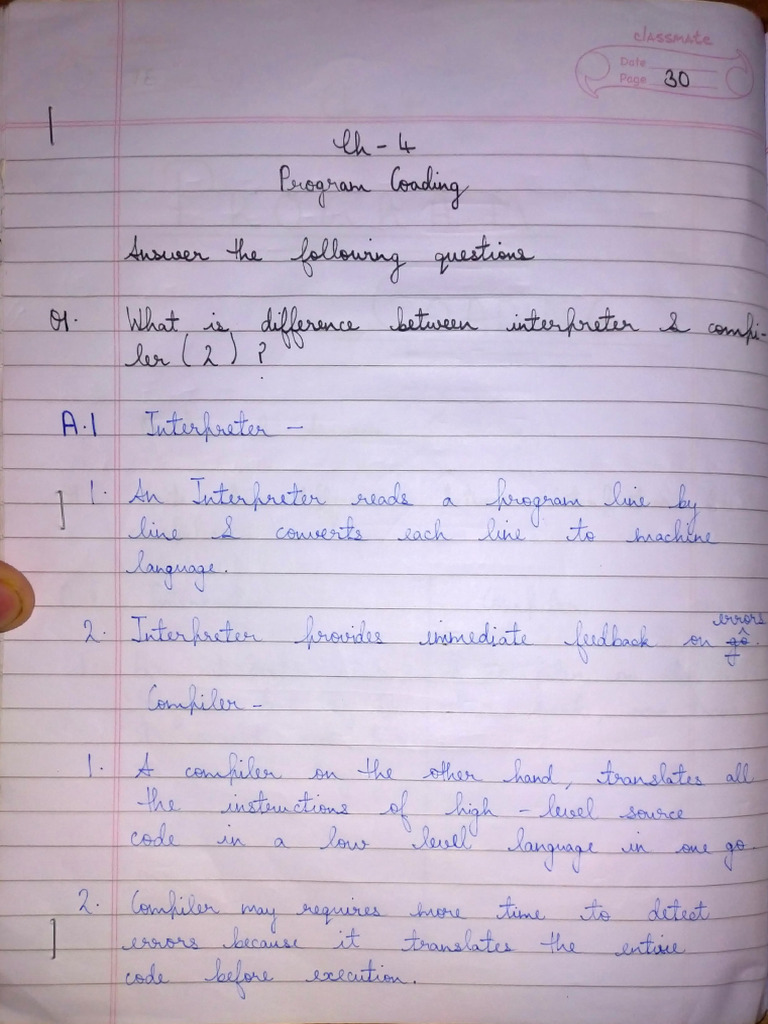 classmate
Date
Page 30
Ch - 4
Program Coading
Answer the following questions
Q1. What is difference between interpreter & compi-
ler (2) ?
A.1 Interpreter -
1. An Interpreter reads a program line by
line & converts each line to machine
language.
errors
2. Interpreter provides immediate feedback on go.
Compiler -
1. A compiler on the other hand, translates all
the instructions of high - level source
code in a low level language in one go.
2. Compiler may requires more time to detect
errors because it translates the entire
code before execution.